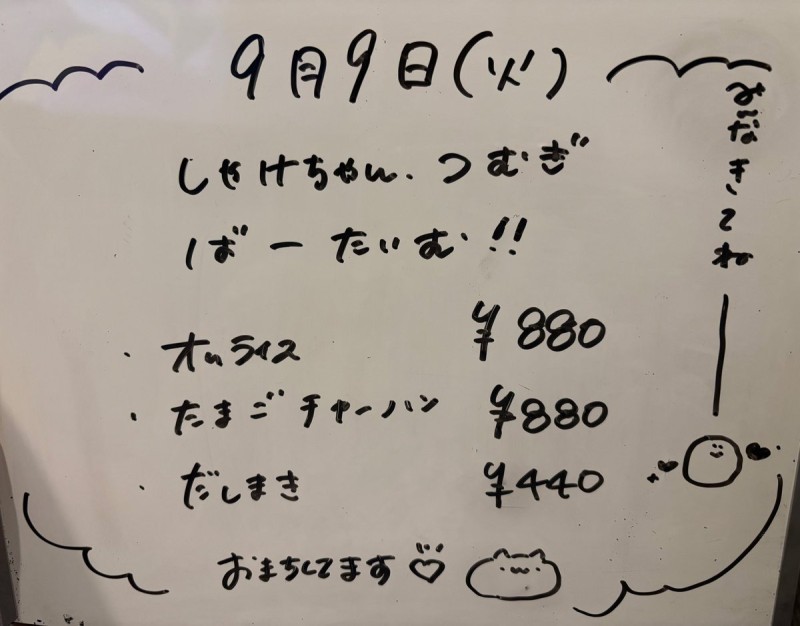 9月9日(火)
しゃけちゃん、つむぎ
ばーたいむ!!
・オムライス ¥880
・たまごチャーハン ¥880
・だしまき ¥440
おまちしてます♡
み〜なきてねー